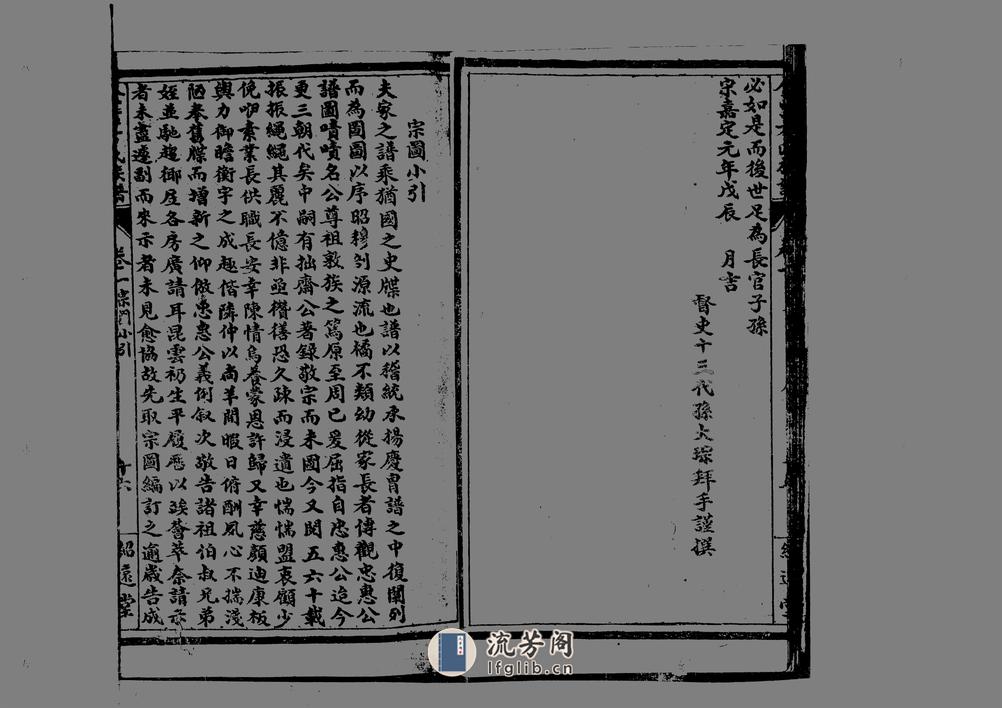 必如是而後世足為長官子孫
宗嘉定元年戊辰 月吉
督史十三代孫大琮拜手謹撰
宗圖小引
夫家之譜乘猶國之史牒也譜以稽統承揚慶胄譜之中復闡列
而為圖圖以序昭穆剖源流也橘不類幼從家長者傳觀忠惠公
譜圖嘖嘖名公尊祖敦族之篤原至周已爰屈指自忠惠公迄今
更三朝代矣中嗣有拙齋公著錄敬宗而未圖今又閱五六十載
振振繩繩其麗不億非亟纘繕恐久疎而浸遺也惴惴盟衷顧少
俛呫素業長供職長安幸陳情烏養蒙恩許歸又幸慈顏迪康板
輿力御瞻衡宇之成趣偕隣仲以尚羊閒暇日俯酬夙心不揣淺
陋奉舊牒而增新之仰倣忠惠公義例叙次敬告諸祖伯叔兄弟
姪並馳趨御屋各房廣請耳昆雲礽生平履歷以跂薈萃奈請
者未盡遽劄而來示者未見愈協故先取宗圖編訂之逾歲告成
卷一宗圖小引
十六
紹遠堂
流芳阁
lfglib.cn